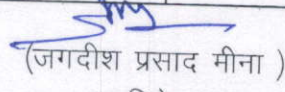 (जगदीश प्रसाद मीना )